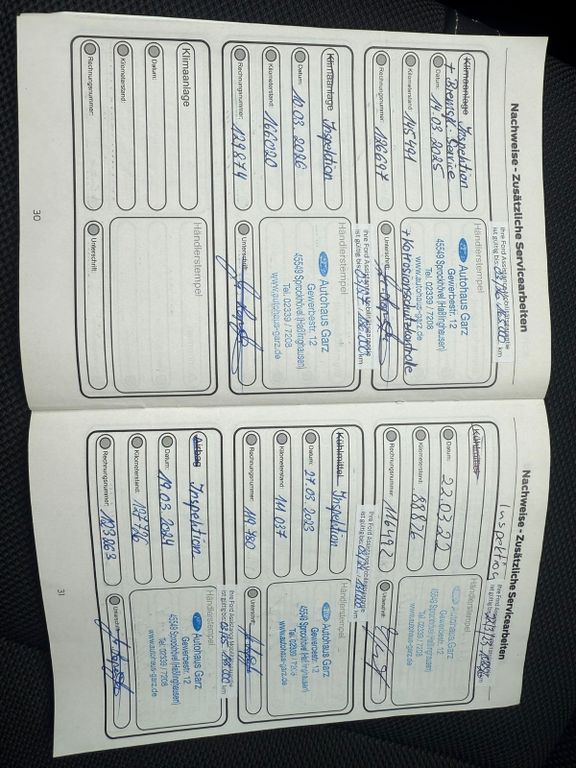 Nachweise - Zusätzliche Servicearbeiten
Klimaanlage Inspektion
+ Bremsfl. Service
Datum: 14.03 2025
Kilometerstand: 145491
Rechnungsnummer: 126697
Händlerstempel
Ihre Ford Assistance Mobilitätsgarantie
ist gültig bis: 03/26 165.000 km
Autohaus Garz
Gewerbestr. 12
45549 Sprockhövel (Haßlinghausen)
Tel. 02339 / 7208
www.autohaus-garz.de
Unterschrift:
+ Korrosionsschutzkontrolle
Klimaanlage Inspektion
Datum: 10.03. 2026
Kilometerstand: 166020
Rechnungsnummer: 129874
Händlerstempel
Ihre Ford Assistance Mobilitätsgarantie
ist gültig bis: 03/27 km
Autohaus Garz
Gewerbestr. 12
45549 Sprockhövel (Haßlinghausen)
Tel. 02339 / 7208
www.autohaus-garz.de
Unterschrift:
Klimaanlage
Datum:
Kilometerstand:
Rechnungsnummer:
Händlerstempel
Unterschrift:
30
Nachweise - Zusätzliche Servicearbeiten
Kühlmittel Inspektion
Datum: 22.03.22
Kilometerstand: 88876
Rechnungsnummer: 116492
Händlerstempel
Ihre Ford Assistance
ist gültig bis: km
Autohaus Garz
Gewerbestr. 12
45549 Sprockhövel (Haßlinghausen)
Tel. 02339 / 7208
www.autohaus-garz.de
Unterschrift:
Kühlmittel Inspektion
Datum: 27.03 2023
Kilometerstand: 111 037
Rechnungsnummer: 119780
Händlerstempel
Ihre Ford Assistance Mobilitätsgarantie
ist gültig bis: km
Autohaus Garz
Gewerbestr. 12
45549 Sprockhövel (Haßlinghausen)
Tel. 02339 / 7208
www.autohaus-garz.de
Unterschrift:
Airbag Inspektion
Datum: 19.03. 2024
Kilometerstand: 127726
Rechnungsnummer: 123363
Händlerstempel
Ihre Ford Assistance Mobilitätsgarantie
ist gültig bis: km
Autohaus Garz
Gewerbestr. 12
45549 Sprockhövel (Haßlinghausen)
Tel. 02339 / 7208
www.autohaus-garz.de
Unterschrift:
31